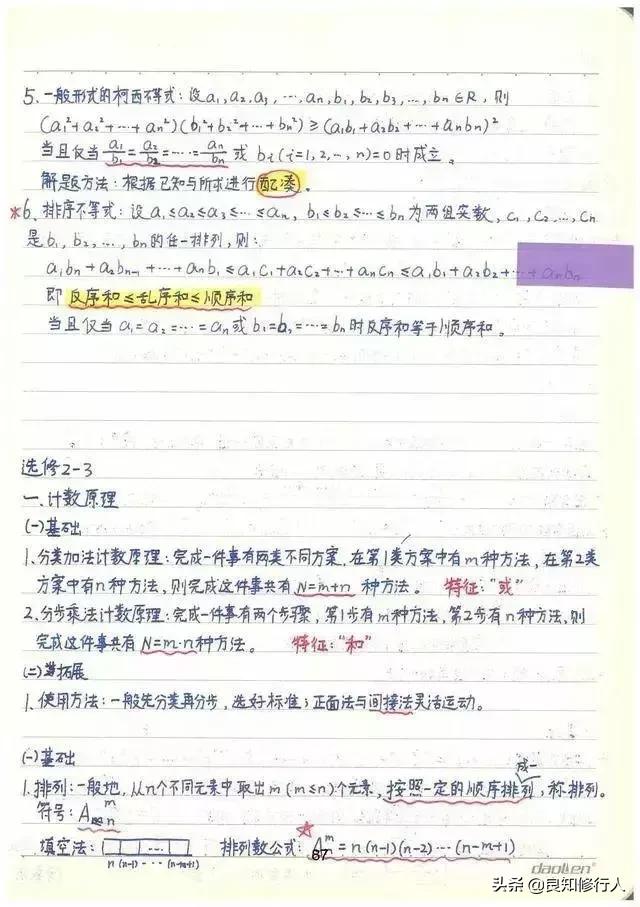 5. 一般形式的柯西不等式：设a₁,a₂,a₃,…,an,b₁,b₂,b₃,…,bn∈R，则
(a₁²+a₂²+…+an²)(b₁²+b₂²+…+bn²)≥(a₁b₁+a₂b₂+…+anbn)²
当且仅当 a₁/b₁=a₂/b₂=…=an/bn 或 bi(i=1,2,…,n)=0时成立。
解题方法：根据已知与所求进行配凑。
*6. 排序不等式：设a₁≤a₂≤a₃≤…≤an，b₁≤b₂≤…≤bn为两组实数，c₁,c₂…,cn
是b₁,b₂,…,bn的任一排列，则：
a₁bn+a₂bn-1+…+anb₁≤a₁c₁+a₂c₂+…+ancn≤a₁b₁+a₂b₂+…+anbn
即 反序和≤乱序和≤顺序和
当且仅当a₁=a₂=…=an或b₁=b₂=…=bn时反序和等于顺序和。
选修2-3
一.计数原理
(一)基础
1.分类加法计数原理：完成一件事有两类不同方案，在第1类方案中有m种方法，在第2类
方案中有n种方法，则完成这件事共有 N=m+n 种方法。 特征：“或”
2.分步乘法计数原理：完成一件事有两个步骤，第1步有m种方法，第2步有n种方法，则
完成这件事共有 N=m·n种方法。 特征：“和”
(二)拓展
1.使用方法：一般先分类再分步，选好标准；正面法与间接法灵活运动。
(一)基础
成一
1.排列：一般地，从n个不同元素中取出m(m≤n)个元素，按照一定的顺序排列，称排列。
符号：Aₙᵐ
填空法： 排列数公式：Aᵐ=n(n-1)(n-2)…(n-m+1)
n (n-1)…(n-m+1)
87
daolen®
头条 @良知修行人